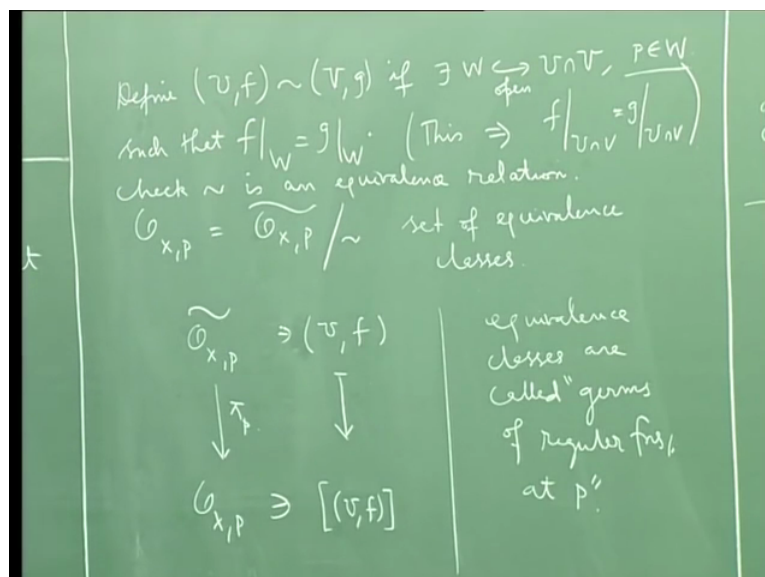 Define (U,f) ~ (V,g) if ∃ W ↪ U∩V, p∈W
open
such that f|_W = g|_W. (This ⇒ f|_{U∩V} = g|_{U∩V})
check ~ is an equivalence relation.
O_{X,p} = \widetilde{O_{X,p}}/~ set of equivalence
classes.
\widetilde{O}_{X,p} ∋ (U,f)
↓ π_p ↓
O_{X,p} ∋ [(U,f)]
equivalence
classes are
called "germs
of regular fns,
at p".
t